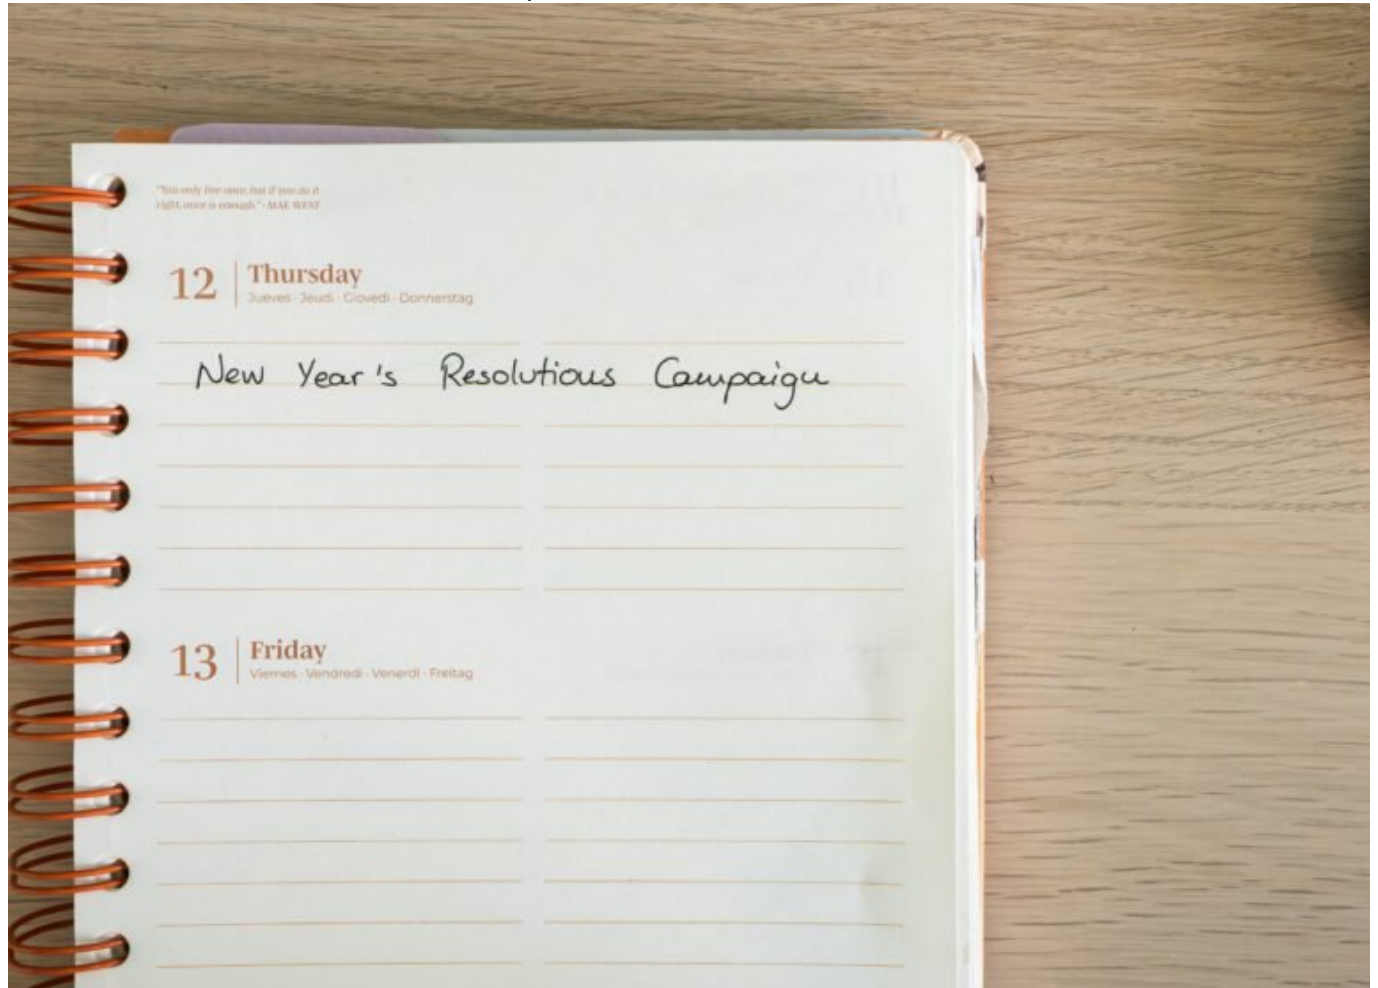 "You only live once, but if you do it
right, once is enough." - MAE WEST
12 Thursday
Jueves · Jeudi · Giovedì · Donnerstag
New Year's Resolutions Campaign
13 Friday
Viernes · Vendredi · Venerdì · Freitag